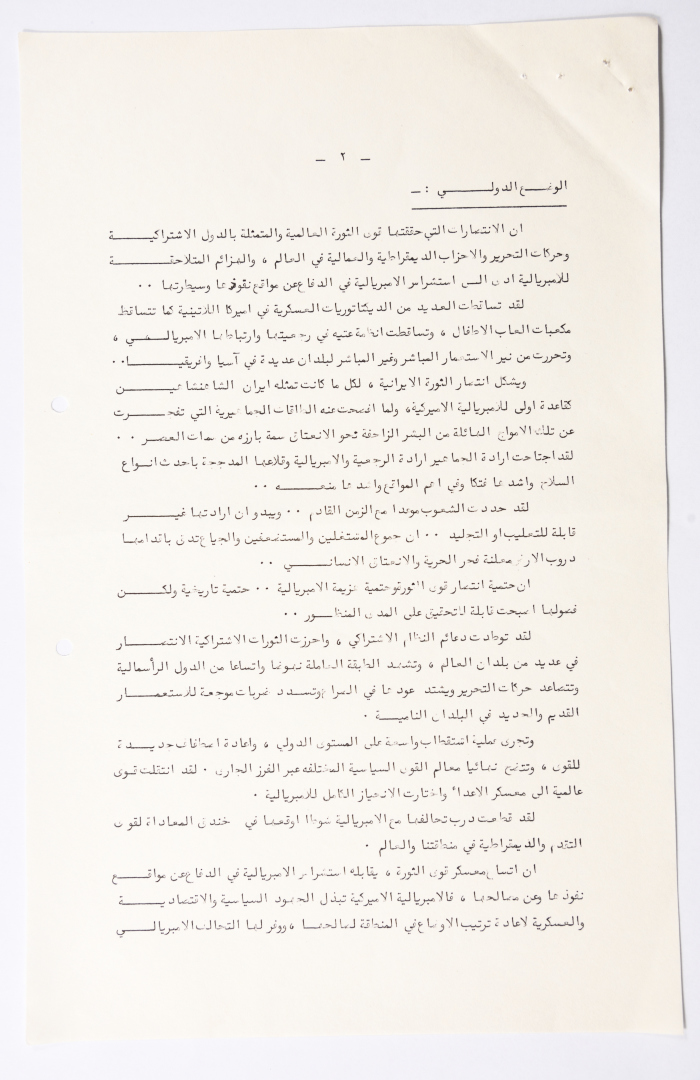 — ٢ —
الوضع الدولي : —
ان الانتصارات التي حققتها قوى الثورة العالمية والمتمثلة بالدول الاشتراكية
وحركات التحرير والاحزاب الديمقراطية والعمالية في العالم ، والهزائم المتلاحقة
للامبريالية ادى الى استشراس الامبريالية في الدفاع عن مواقع نفوذها وسيطرتها ٠٠
لقد تساقطت العديد من الديكتاتوريات العسكرية في اميركا اللاتينية كما تتساقط
مكعبات العاب الاطفال ، وتساقطت انظمة عتيه في رجعيتها وارتباطها الامبريالي ،
وتحررت من نير الاستعمار المباشر وغير المباشر لبلدان عديدة في آسيا وافريقيا ٠٠
ويشكل انتصار الثورة الايرانية ، لكل ما كانت تمثله ايران الشاهنشاهيين
كقاعدة اولى للامبريالية الاميركية، ولما افصحت عنه الطاقات الجماهيرية التي تفجرت
عن تلك الامواج الهائلة من البشر الزاحفة نحو الانعتاق سمة بارزه من سمات العصر ٠٠
لقد اجتاحت ارادة الجماهير ارادة الرجعية والامبريالية وقلاعها المدججة باحدث انواع
السلاح واشدها فتكا وفي اهم المواقع واشدها منعه ٠٠
لقد حددت الشعوب موعدا مع الزمن القادم ٠٠ ويبدو ان ارادتها غير
قابلة للتعليب او التجليد ٠٠ ان جموع المشتغلين والمستضعفين والجياع تدق باقدامها
دروب الارض معلنة فجر الحرية والانعتاق الانساني ٠٠
ان حتمية انتصار قوى الثورة وحتمية هزيمة الامبريالية ٠٠ حتمية تاريخية ولكن
فصولها اصبحت قابلة للتحقيق على المدى المنظور ٠٠
لقد توطدت دعائم النظام الاشتراكي ، واحرزت الثورات الاشتراكية الانتصار
في عديد من بلدان العالم ، وتشهد الطبقة العاملة نهوضا واتساعا من الدول الرأسمالية
وتتصاعد حركات التحرير ويشتد عودها في الصراع وتسدد ضربات موجعة للاستعمار
القديم والجديد في البلدان النامية ٠
وتجرى عملية استقطاب واسعة على المستوى الدولي ، واعادة اصطفاف جديدة
للقوى ، وتتضح نهائيا معالم القوى السياسية المختلفه عبر الفرز الجارى ٠ لقد انتقلت قوى
عالمية الى معسكر الاعداء واختارت الانحياز الكامل للامبريالية ٠
لقد قطعت درب تحالفها مع الامبريالية شوطا اوقعها في خندق المعاداة لقوى
التقدم والديمقراطية في منطقتنا والعالم ٠
ان اتساع معسكر قوى الثورة ، يقابله استشراس الامبريالية في الدفاع عن مواقع
نفوذها وعن مصالحها ، فالامبريالية الاميركية تبذل الجهود السياسية والاقتصادية
والعسكرية لاعادة ترتيب الاوضاع في المنطقة لصالحها ، ووفر لها التحالف الامبريالي